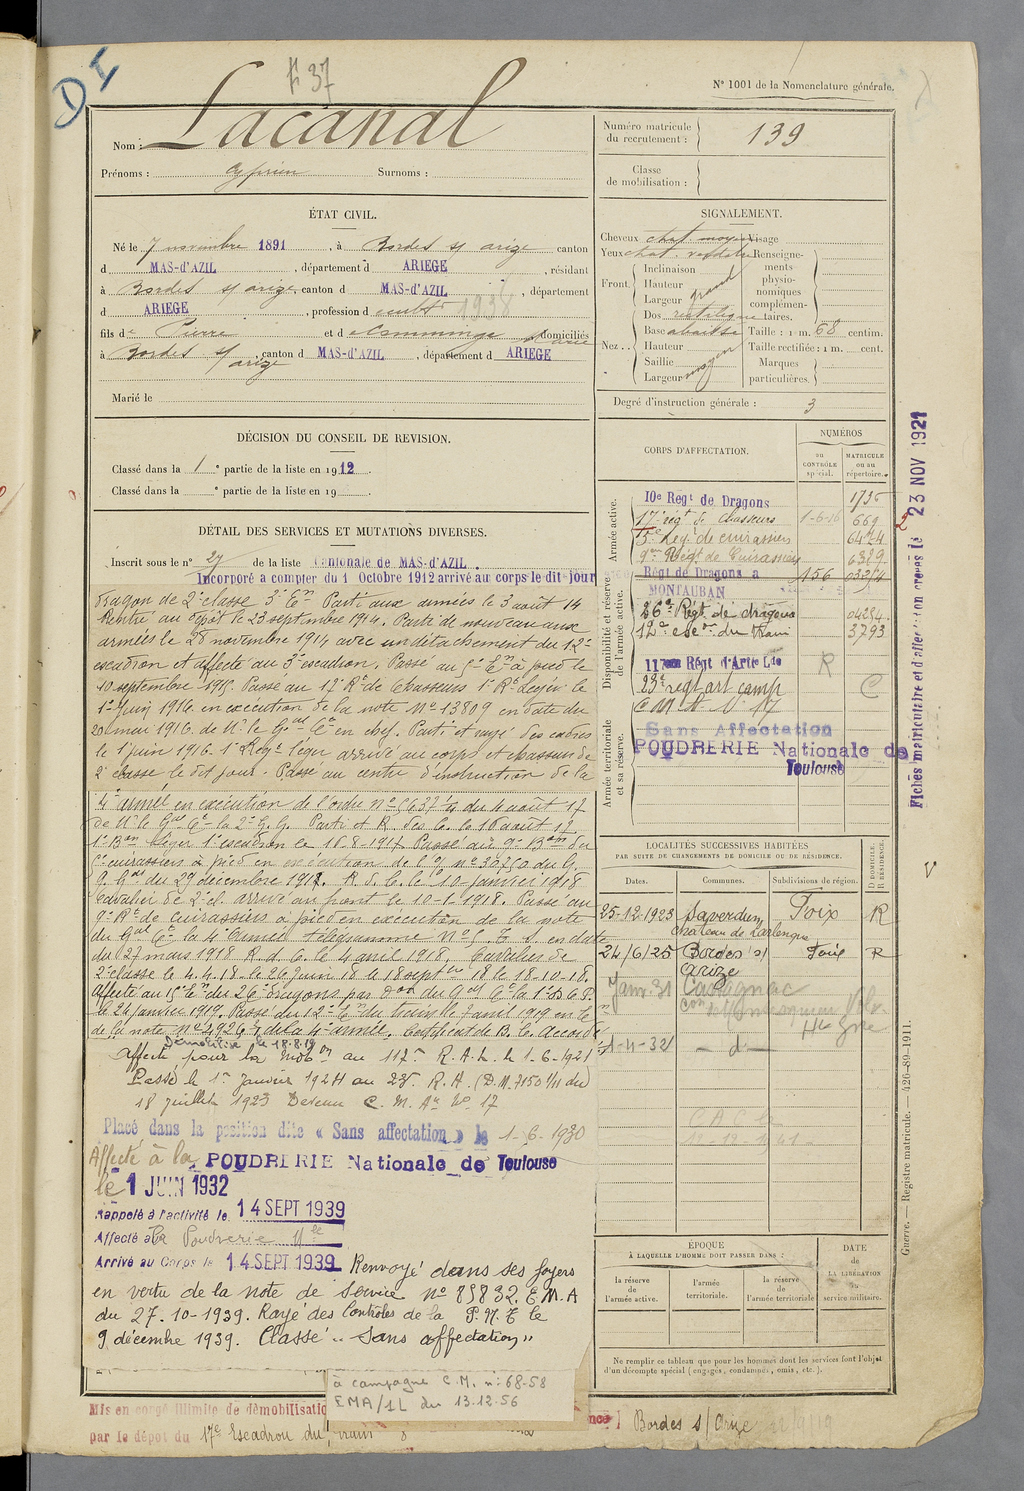 DI
F 37
N° 1001 de la Nomenclature générale.
Nom : Lacanal
Prénoms : Cyprien Surnoms :
Numéro matricule du recrutement : 139
Classe de mobilisation :
ÉTAT CIVIL.
Né le 7 novembre 1891, à Bordes s/ arize canton
d MAS-d'AZIL, département d ARIEGE, résidant
à Bordes s/ arize, canton d MAS-d'AZIL, département
d ARIEGE, profession de cultr 1938
fils de Pierre et de Commenge Marie domiciliés
à Bordes s/ arize, canton d MAS-d'AZIL, département d ARIEGE
Marié le
SIGNALEMENT.
Cheveux chat moyen Visage
Yeux chat. verdatre Renseignements physionomiques complémentaires.
Front. Inclinaison
Hauteur
Largeur grand
Nez.. Dos rectiligne
Base abaissé Taille : 1 m. 68 centim.
Hauteur Taille rectifiée : 1 m. cent.
Saillie Marques
Largeur moyen particulières.
Degré d'instruction générale : 3
DÉCISION DU CONSEIL DE REVISION.
Classé dans la 1e partie de la liste en 1912.
Classé dans la e partie de la liste en 19
DÉTAIL DES SERVICES ET MUTATIONS DIVERSES.
Inscrit sous le n° 27 de la liste Cantonale de MAS-d'AZIL.
Incorporé a compter du 1 Octobre 1912 arrivé au corps le dit jour
Dragon de 2e classe 3e Em Parti aux armées le 3 août 14
Rentré au dépôt le 23 septembre 1914. Parti de nouveau aux
armées le 28 novembre 1914 avec un détachement du 12e
escadron et affecté au 3e escadron. Passé au 5e Em à pied le
10 septembre 1915. Passé au 17e Rt de Chasseurs 1e Rt Léger le
1er Juin 1916 en exécution de la note No 13809 en date du
20 mai 1916. de Mr le Gal Ct en chef. Parti et rayé des cadres
le 1 juin 1916. 1e Regt leger arrivé au corps et chasseur de
2e classe le dit jour. Passé au centre d'instruction de la
4e armée en exécution de l'ordre No 5637/4 du 4 août 17
de Mr le Gal Ct la 2e G. G. Parti et R. des C. le 16 août 17.
1e Bon Léger 1e escadron le 16-8-1917. Passé au 9e Bon du
5e cuirassiers à pied en exécution de l' no 30250 du G.
Q. Gal du 29 décembre 1917. R. d. C. le 10 janvier 1918
Cavalier de 2e cl. arrivé au front le 10-1-1918. Passé au
9e Rt de Cuirassiers à pied en exécution de la note
du Gal Ct la 4e armée, télégramme No en date
du 27 mars 1918 R. d. C. le 4 avril 1918. Cavalier de
2e classe le 4.4.18.
Affecté au 15e Em du 26e dragons par don du Gal Ct la
le 24 janvier 1919. Passé du 12e E. du train le 1 avril 1919 en Ex
de la note No 4926/1 de la 4e armée. Certificat de B. C. accordé
Démobilisé le 18.8.19
Affecté pour la mobon au 117e R.A.L. le 1-6-1921
Passé le 1er Janvier 1924 au 23e R.A. (D.M. 7150 1/11 du
18 juillet 1923 Devenu C. M. Ar No 17
Placé dans la position dite « Sans affectation » le 1-6-1930
Affecté à la POUDRERIE Nationale de Toulouse
le 1 JUIN 1932
Rappelé à l'activité le 14 SEPT 1939
Affecté à la Poudrerie Nle
Arrivé au Corps le 14 SEPT 1939 Renvoyé dans ses foyers
en vertu de la note de Service No 85832 E.M.A
du 27-10-1939. Rayé des Contrôles de la P.N.T le
9 décembre 1939. Classé "Sans affectation"
à campagne C.M. n: 68-58
EMA/1L du 13.12.56
Mis en congé illimité de démobilisatio
par le dépot du 17e Escadron du train
Bordes s/ Arize
CORPS D'AFFECTATION.
NUMÉROS
au CONTRÔLE spécial.
MATRICULE ou au répertoire.
Armée active.
10e Regt de Dragons 1735
17e régt de chasseurs 1-6-16 669
5e Reg. de cuirassiers
9em Régt de Cuirassiers 6329
Disponibilité et réserve de l'armée active.
Régt de Dragons a MONTAUBAN 156
26e Régt de dragons 04284
12e escon du train 3793
117em Régt d'Artie Lde R
23e régt art camp C
C M A N° 17
Armée territoriale et sa réserve.
Sans Affectation
POUDRERIE Nationale de Toulouse
Fiches matriculaire et d'affectation créées le 23 NOV 1921
2
V
LOCALITÉS SUCCESSIVES HABITÉES
PAR SUITE DE CHANGEMENTS DE DOMICILE OU DE RÉSIDENCE.
Dates. Communes. Subdivisions de région. D DOMICILE. R RÉSIDENCE.
25-12-1923 Saverdun Château de Larlenque Foix R
24/6/25 Bordes s/ Arize Foix R
Janv. 31 Castagnac
Hte Gne
1-4-32 — d —
ÉPOQUE
À LAQUELLE L'HOMME DOIT PASSER DANS :
la réserve de l'armée active.
l'armée territoriale.
la réserve de l'armée territoriale
DATE de LA LIBÉRATION du service militaire.
Ne remplir ce tableau que pour les hommes dont les services font l'objet
d'un décompte spécial (engagés, condamnés, omis, etc.).
Guerre. — Registre matricule. — 426-89-1911.